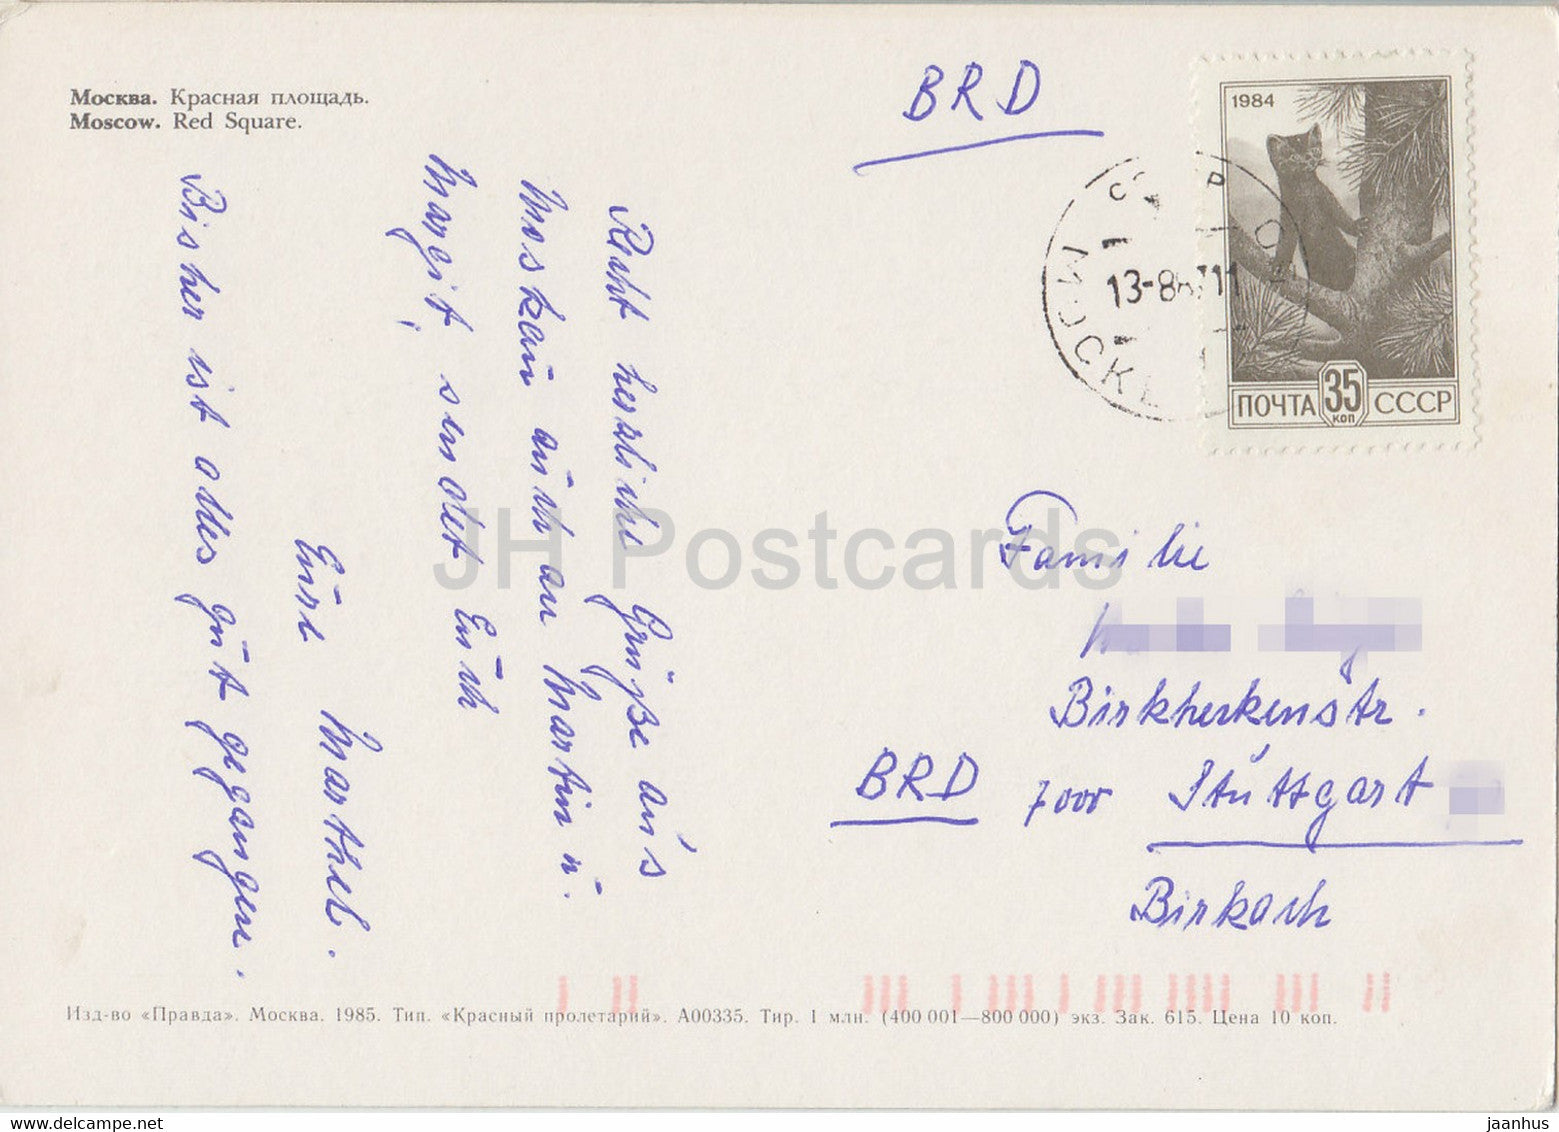 Москва. Красная площадь.
Moscow. Red Square.
BRD
1984
35
коп
ПОЧТА СССР
13-8
11
Recht herzliche Grüße aus
Moskau auch an Martin u.
Margit sendet Euch
Eure Marthel.
Bisher ist alles gut gegangen.
Familie
Birkheckenstr.
BRD 7000 Stuttgart
Birkach
Изд-во «Правда». Москва. 1985. Тип. «Красный пролетарий». А00335. Тир. 1 млн. (400 001—800 000) экз. Зак. 615. Цена 10 коп.
JH Postcards
hipostcard.com
jaanhus